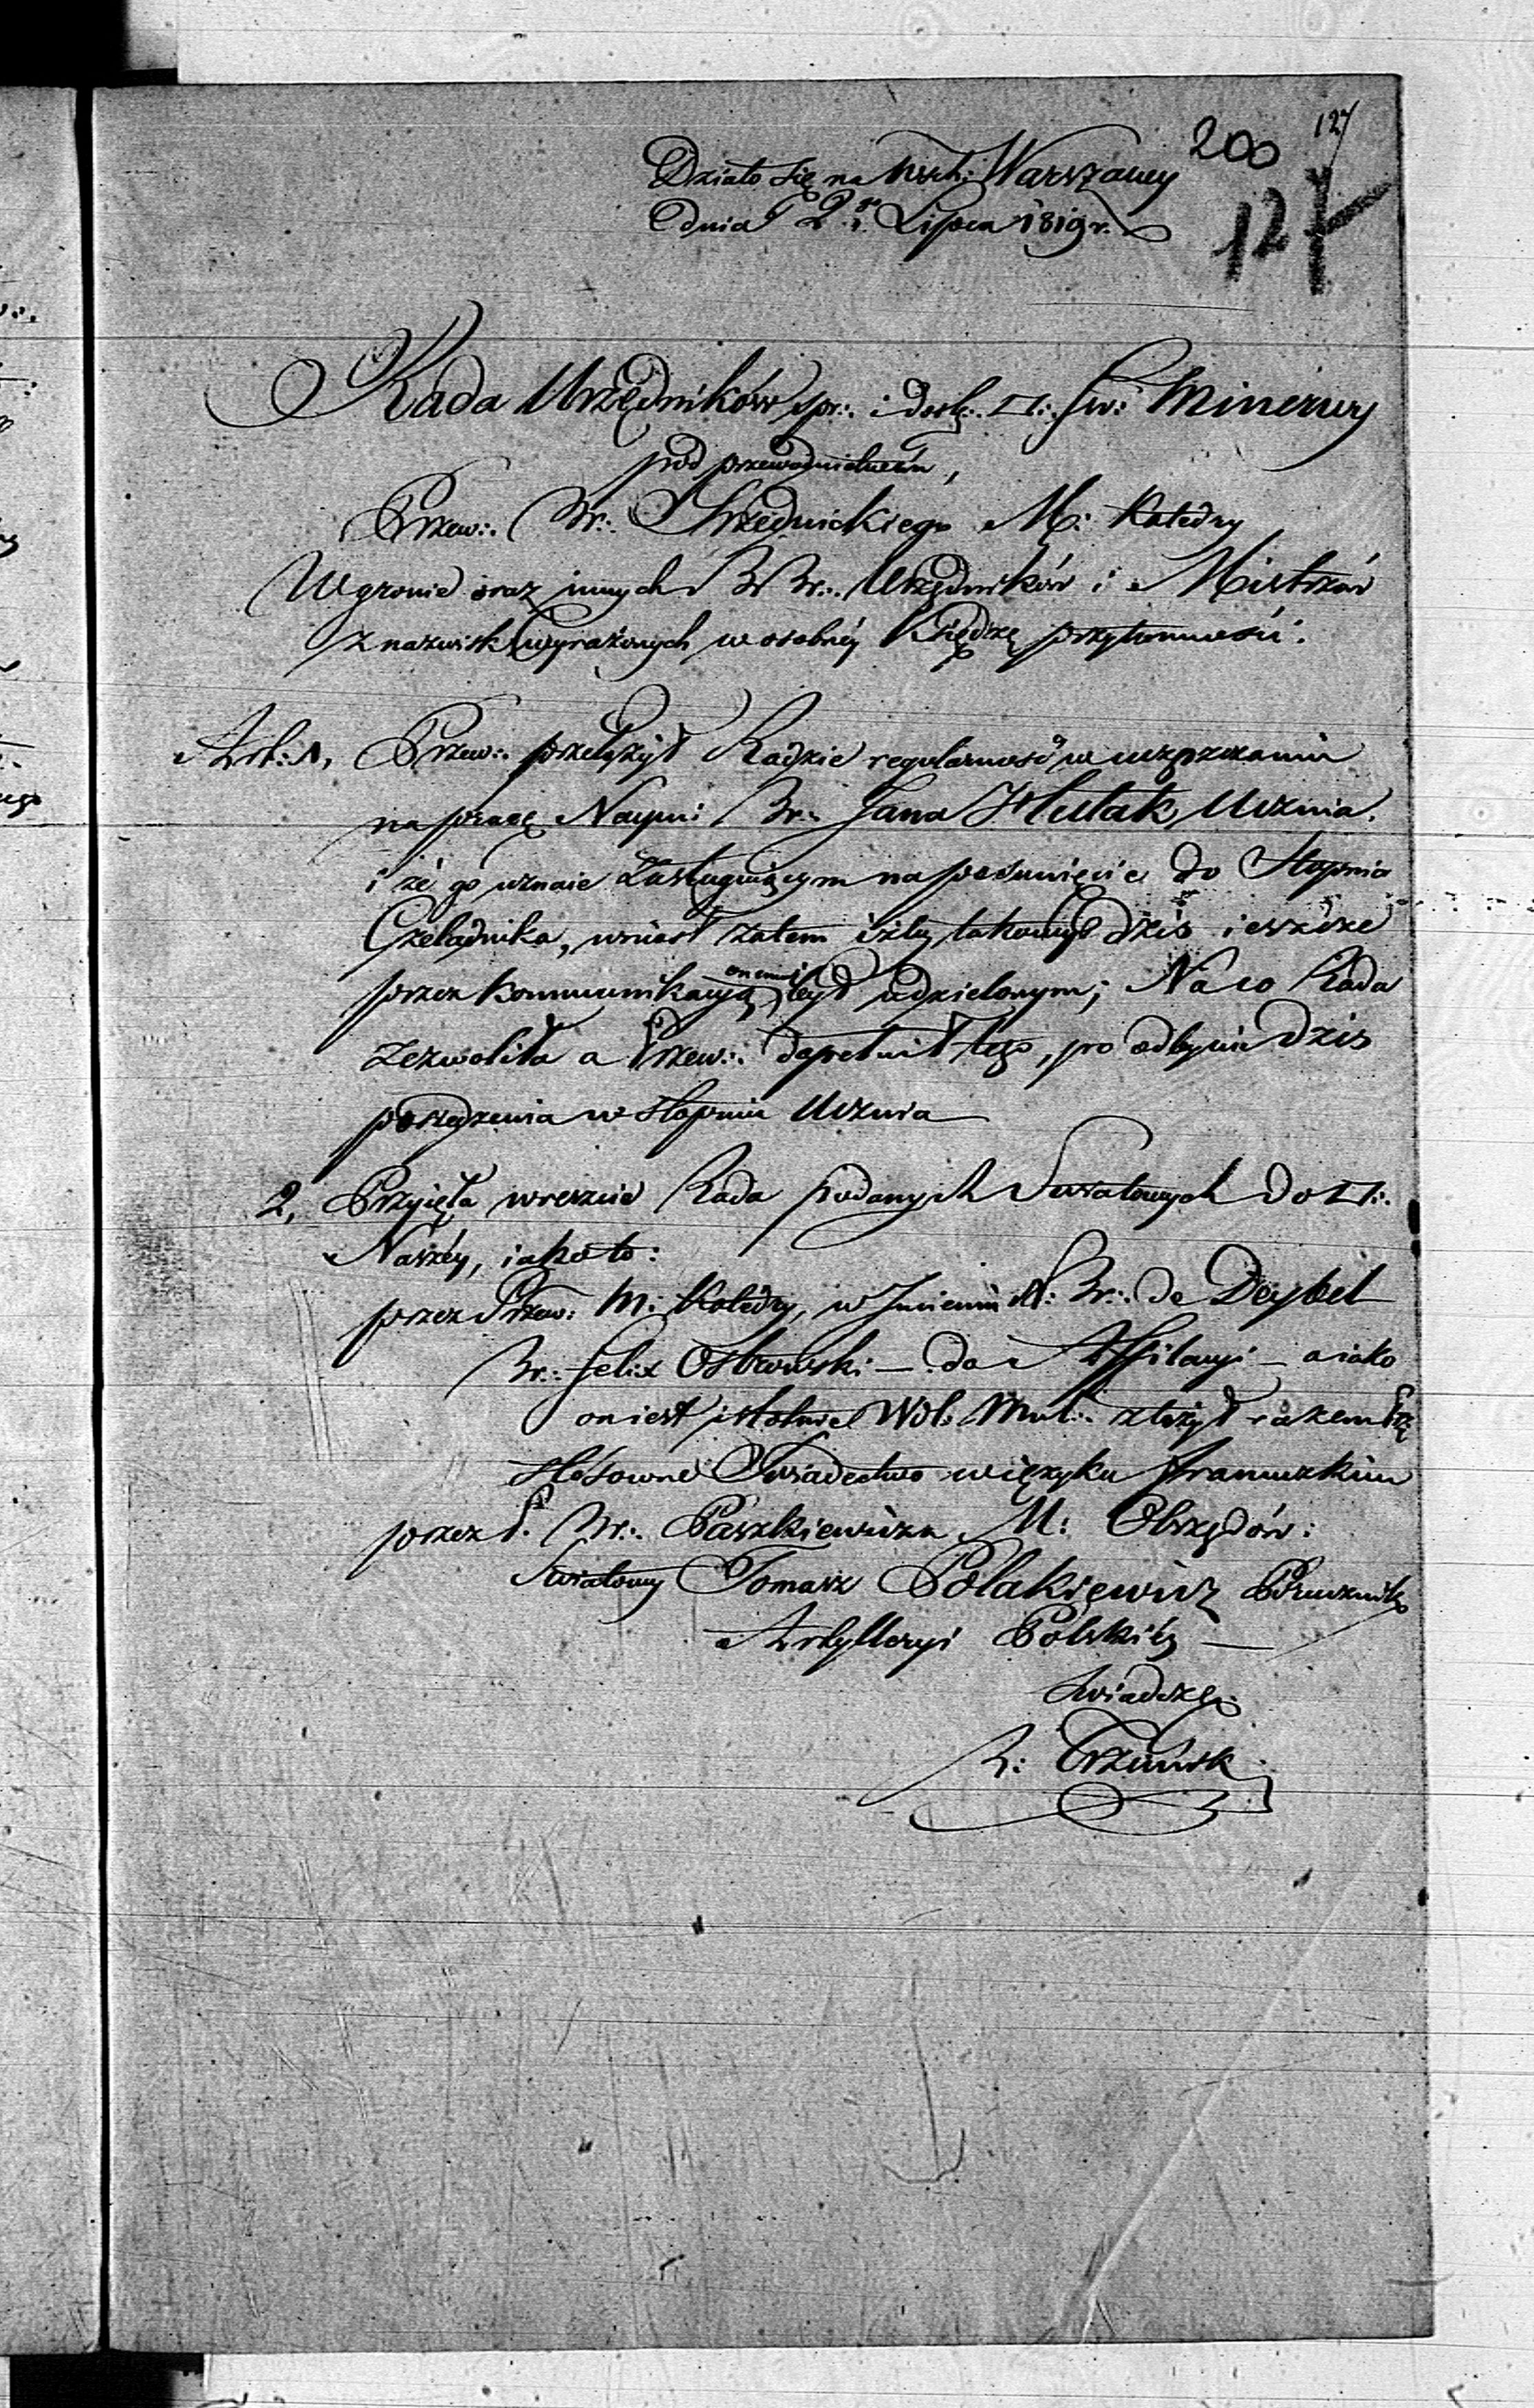 127
200
127
Działo się na Wsch: Warszawy
dnia 2.go Lipca 1819 r.
Rada Urzędników spr:. i dosk:. □:. Św: Minerwy
pod przewodnictwem,
Przew:. Br:. Średnickiego M: Katedry
W gronie oraz innych BBr:. Urzędników i Mistrzów
z nazwisk wyrażonych w osobnéy Księdze przytomności.
Art: 1, Przew:. przełożył Radzie regularność w uczęszczaniu
na pracę Br:. Jana Hlutak, Ucznia.
i że go uznaie zasługuiącym na posunięcie do Stopnia
Czeladnika, wniosł zatem iżby takowy dziś ieszcze
przez kommunikacyą onemu był udzielonym; Na co Rada
zezwoliła a Przew:. dopełnił tego, po odbyciu dziś
posiedzenia w stopniu Ucznia
2, Przyięła wreszcie Rada podanych Swiatowych do □:.
Naszéy, iako to:
przez Przew: M: Katedry, w Imieniu N: Br:. de Deybel
Br:. Felix Ostrowski – do Affilacyi – a iako
on iest istotnie Wol: Mul:. złożył razem
stosowne Swiadectwo w ięzyku francuzkim
przez P. Br:. Paszkiewicza M: Obrzędów:
Swiatowy Tomasz Polakiewicz Porucznik
Artylleryi Polskiéy
Swiadczę